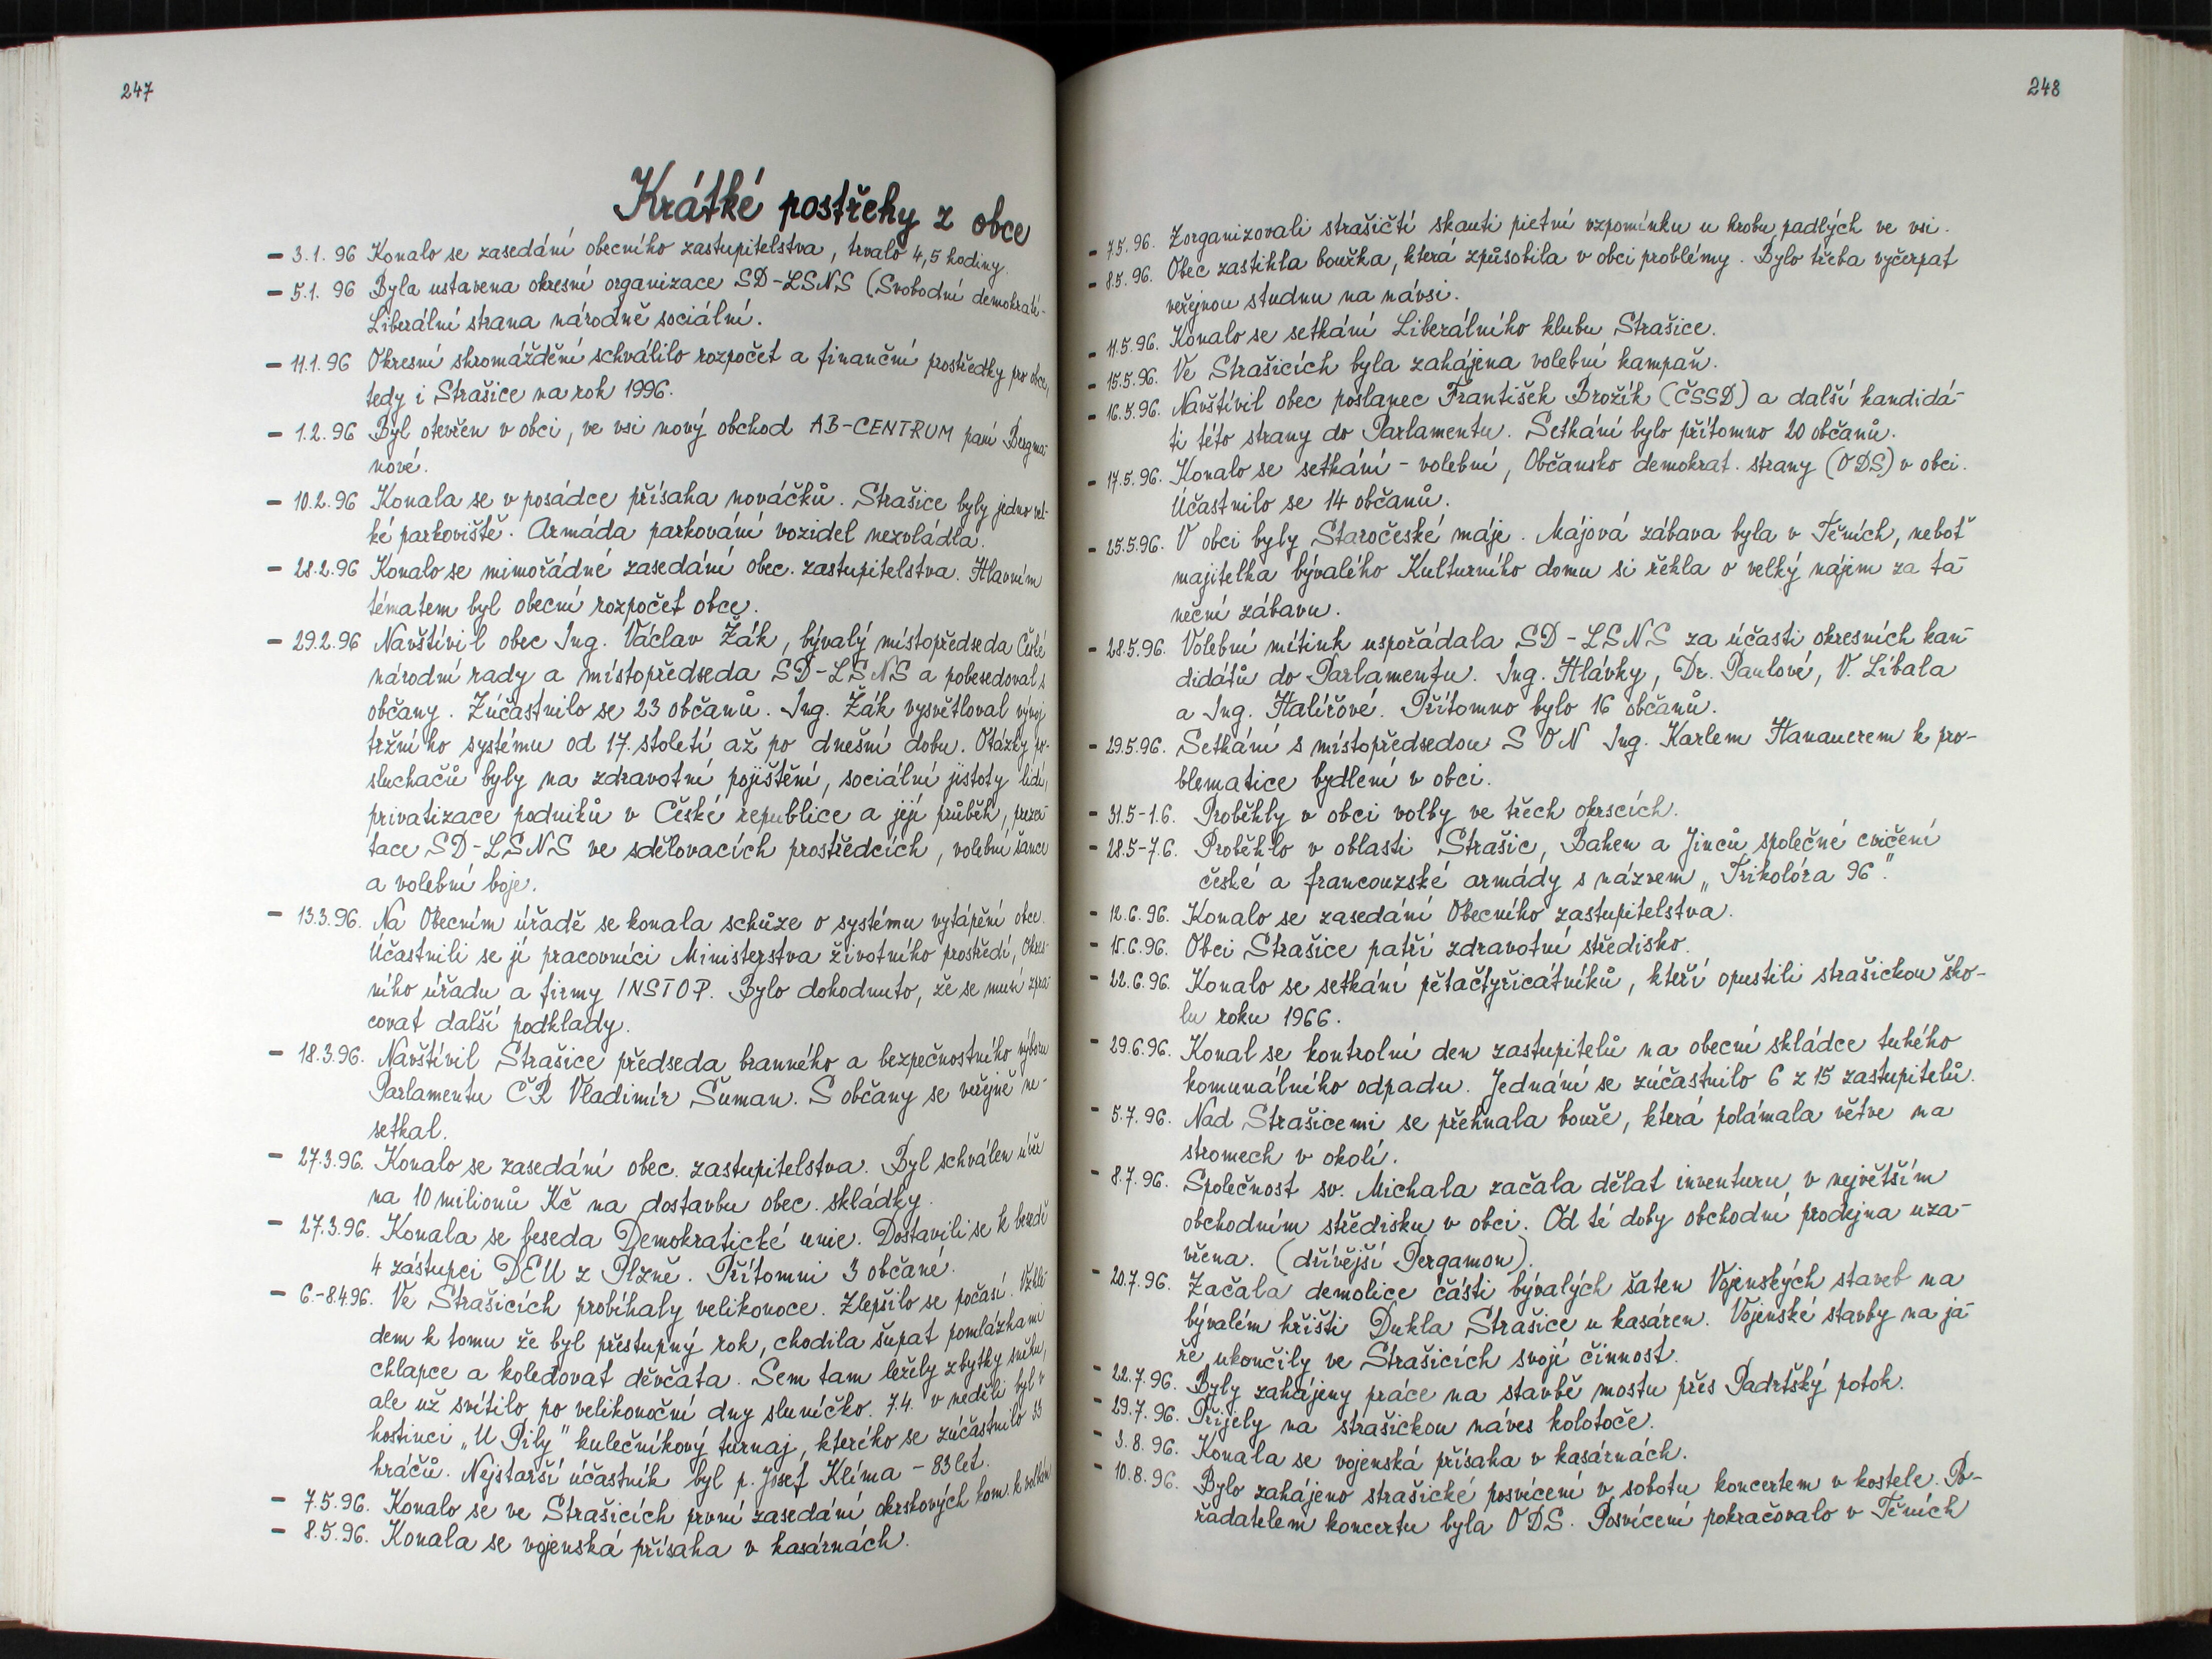 247
Krátké postřehy z obce
- 3.1. 96 Konalo se zasedání obecního zastupitelstva, trvalo 4,5 hodiny.
- 5.1. 96 Byla ustavena okresní organizace SD-LSNS (Svobodní demokraté-
Liberální strana národně sociální.
- 11.1.96 Okresní shromáždění schválilo rozpočet a finanční prostředky pro obce,
tedy i Strašice na rok 1996.
- 1.2.96 Byl otevřen v obci, ve vsi nový obchod AB-CENTRUM paní Bergma-
nové.
- 10.2.96 Konala se v posádce přísaha nováčků. Strašice byly jedno vel-
ké parkoviště. Armáda parkování vozidel nezvládla.
- 28.2.96 Konalo se mimořádné zasedání obec. zastupitelstva. Hlavním
tématem byl obecní rozpočet obce.
- 29.2.96 Navštívil obec Ing. Václav Žák, bývalý místopředseda České
národní rady a místopředseda SD-LSNS a pobesedoval s
občany. Zúčastnilo se 23 občanů. Ing. Žák vysvětloval vývoj
tržního systému od 17. století až po dnešní dobu. Otázky po-
sluchačů byly na zdravotní pojištění, sociální jistoty lidí,
privatizace podniků v České republice a její průběh, prezen-
tace SD-LSNS ve sdělovacích prostředcích, volební šance
a volební boje.
- 13.3.96. Na Obecním úřadě se konala schůze o systému vytápění obce.
Účastnili se jí pracovníci Ministerstva životního prostředí, Okres-
ního úřadu a firmy INSTOP. Bylo dohodnuto, že se musí zpra-
covat další podklady.
- 18.3.96. Navštívil Strašice předseda branného a bezpečnostního výboru
Parlamentu ČR Vladimír Šuman. S občany se veřejně ne-
setkal.
- 27.3.96. Konalo se zasedání obec. zastupitelstva. Byl schválen úvěr
na 10 milionů Kč na dostavbu obec. skládky.
- 27.3.96. Konala se beseda Demokratické unie. Dostavili se k besedě
4 zástupci DEU z Plzně. Přítomni 3 občané.
- 6.-8.4.96. Ve Strašicích probíhaly velikonoce. Zlepšilo se počasí. Vzhle-
dem k tomu že byl přestupný rok, chodila šupat pomlázkami
chlapce a koledovat děvčata. Sem tam ležely zbytky sněhu,
ale už svítilo po velikonoční dny sluníčko. 7.4. v neděli byl v
hostinci „U Pily" kulečníkový turnaj, kterého se zúčastnilo 33
hráčů. Nejstarší účastník byl p. Josef Klíma - 83 let.
- 7.5.96. Konalo se ve Strašicích první zasedání okrskových kom. k volbám
- 8.5.96. Konala se vojenská přísaha v kasárnách.
248
- 7.5.96. Zorganizovali strašičtí skauti pietní vzpomínku u hrobu padlých ve vsi.
- 8.5.96. Obec zastihla bouřka, která způsobila v obci problémy. Bylo třeba vyčerpat
veřejnou studnu na návsi.
- 11.5.96. Konalo se setkání Liberálního klubu Strašice.
- 15.5.96. Ve Strašicích byla zahájena volební kampaň.
- 16.5.96. Navštívil obec poslanec František Brožík (ČSSD) a další kandidá-
ti této strany do Parlamentu. Setkání bylo přítomno 20 občanů.
- 17.5.96. Konalo se setkání - volební, Občansko demokrat. strany (ODS) v obci.
Účastnilo se 14 občanů.
- 25.5.96. V obci byly Staročeské máje. Májová zábava byla v Těních, neboť
majitelka bývalého Kulturního domu si řekla o velký nájem za ta-
neční zábavu.
- 28.5.96. Volební mítink uspořádala SD-LSNS za účasti okresních kan-
didátů do Parlamentu. Ing. Hlávky, Dr. Paulové, V. Líbala
a Ing. Halířové. Přítomno bylo 16 občanů.
- 29.5.96. Setkání s místopředsedou SON Ing. Karlem Hanauerem k pro-
blematice bydlení v obci.
- 31.5-1.6. Proběhly v obci volby ve třech okrscích.
- 28.5-7.6. Proběhlo v oblasti Strašic, Bahen a Jinců společné cvičení
české a francouzské armády s názvem „Trikolóra 96".
- 12.6.96. Konalo se zasedání Obecního zastupitelstva.
- 15.6.96. Obci Strašice patří zdravotní středisko.
- 22.6.96. Konalo se setkání pětačtyřicátníků, kteří opustili strašickou ško-
lu roku 1966.
- 29.6.96. Konal se kontrolní den zastupitelů na obecní skládce tuhého
komunálního odpadu. Jednání se zúčastnilo 6 z 15 zastupitelů.
- 5.7.96. Nad Strašicemi se přehnala bouře, která polámala větve na
stromech v okolí.
- 8.7.96. Společnost sv. Michala začala dělat inventuru v největším
obchodním středisku v obci. Od té doby obchodní prodejna uza-
vřena. (dřívější Pergamon).
- 20.7.96. Začala demolice části bývalých šaten Vojenských staveb na
bývalém hřišti Dukla Strašice u kasáren. Vojenské stavby na ja-
ře ukončily ve Strašicích svojí činnost.
- 22.7.96. Byly zahájeny práce na stavbě mostu přes Padrťský potok.
- 29.7.96. Přijely na strašickou náves kolotoče.
- 3.8.96. Konala se vojenská přísaha v kasárnách.
- 10.8.96. Bylo zahájeno strašické posvícení v sobotu koncertem v kostele. Po-
řadatelem koncertu byla ODS. Posvícení pokračovalo v Těních